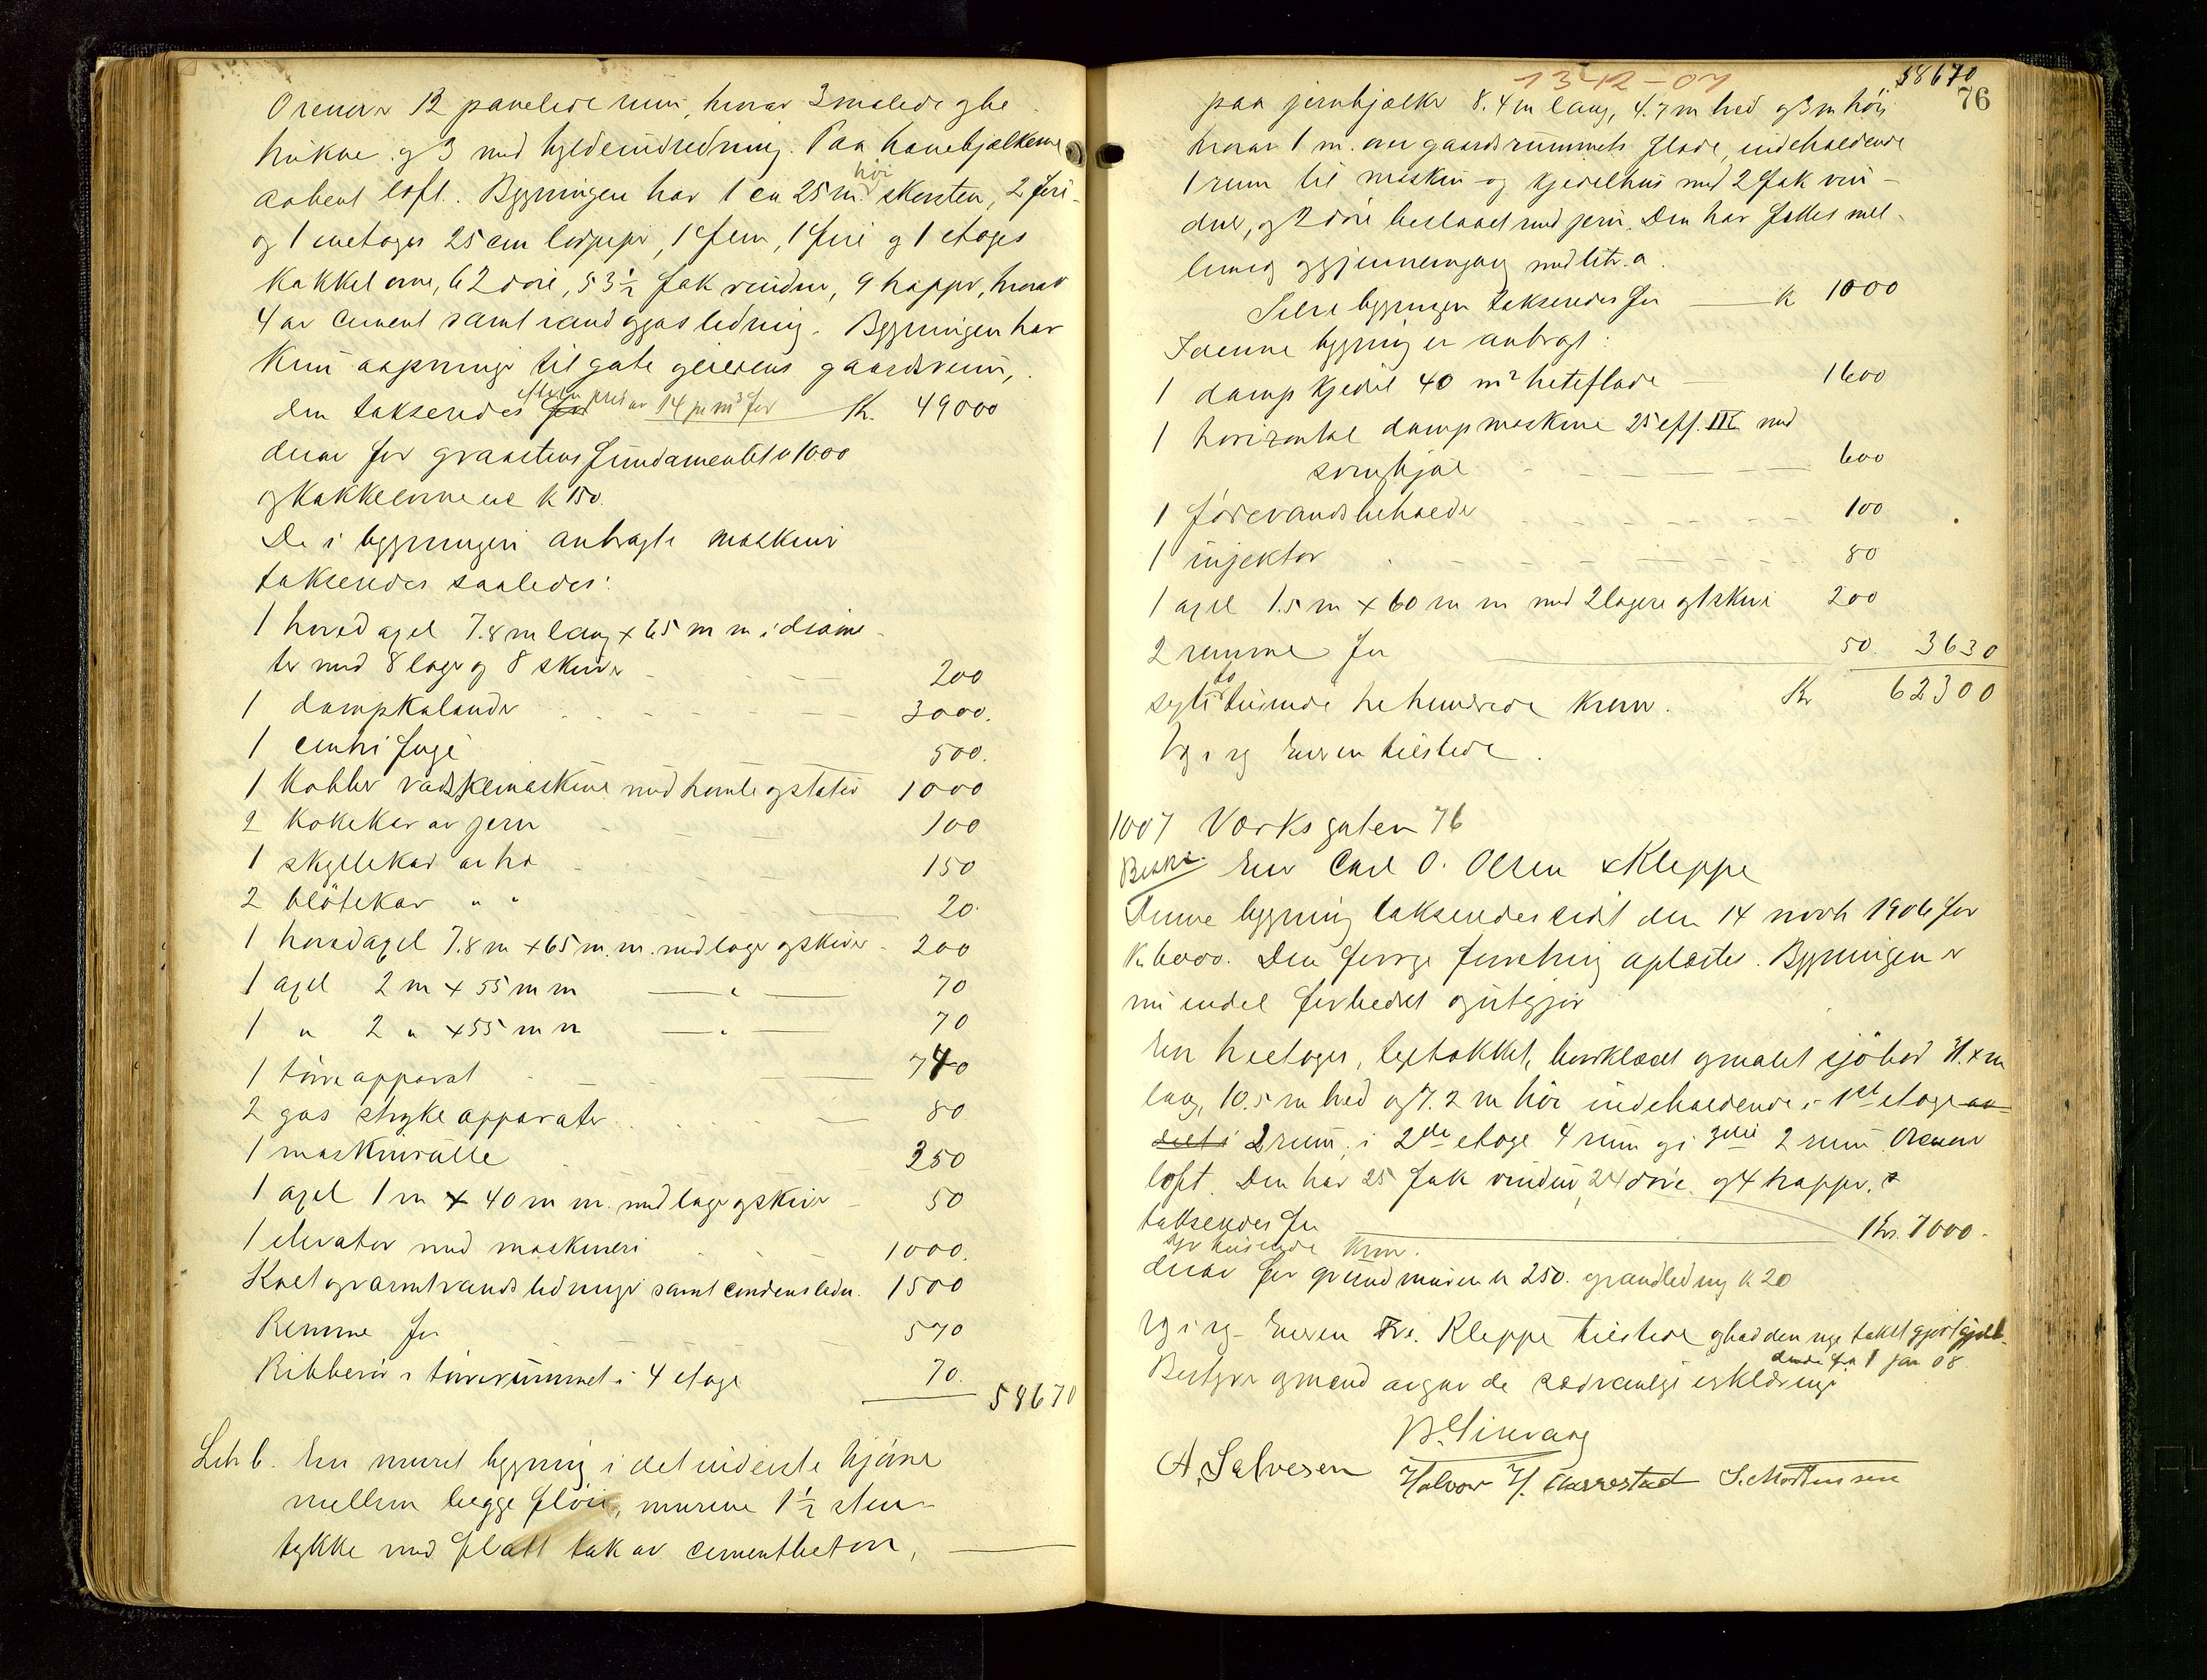 Ovenover 12 panelede rum, hvorav 3 malede og be
trukne og 3 med hyldeindredning. Paa hanebjælkerne
aabent loft. Bygningen har 1 ca 25 m. høi skorsten, 2 fire-
og 1 enetages 25 cm lodpipe, 1 fem, 1 fire og 1 etages
kakkelovne, 62 døre, 53½ fak vinduer, 9 trapper, hvorav
4 av cement samt vand og gasledning. Bygningen har
kun aapninger til gate og eierens gaardsrum,
den takseredes efter en pris av 14 pr m³ for Kr. 49000
derav for graastensfundamentet kr 1000
og kakkelovnene kr 150.
De i bygningen anbragte maskiner
takseredes saaledes:
1 hovedaxel 7.8 m lang x 65 m m i diame-
ter med 8 lager og 8 skiver 200
1 dampkalander 3000.
1 centrifuge 500.
1 dobbel vadskemaskine med tromle og stativ 1000
2 kokekar av jern 100
1 skyllekar av træ 150
2 bløtekar " " 20.
1 hovedaxel 7.8 m x 65 m.m. med lager og skiver 200
1 axel 2 m x 55 m m — " — 70
1 " 2 " x 55 m m — " — 70
1 tørreapparat 740
2 gas strykeapparater 80
1 maskinrulle 350
1 axel 1 m x 40 m m. med lager og skiver 50
1 elevator med maskineri 1000.
Kolt og varmtvandsledninger samt condensledn. 1500
Remme for 570
Ribberør i tørrerummet i 4 etage 70.
58670
Litr b. En muret bygning i det inderste hjørne
mellem begge fløie, murene 1½ sten
tykke med flatt tak av cementbeton,
13-12-07
58670
76
paa jernbjælker 8.4 m lang, 4.7 m bred og 3 m høi
hvorav 1 m. over gaardsrummets flade, indeholdende
1 rum til maskin- og kjedelhus med 2 fak vin-
duer, og 2 døre beslaaet med jern. Den har fælles mel-
lemvæg og gjennemgang med litr. a.
Selve bygningen takseredes for kr 1000
I denne bygning er anbragt:
1 dampkjedel 40 m² heteflade 1600
1 horizontal dampmaskine 25 eff. HK med
svinghjul 600
1 fødevandsbeholder 100
1 injektor 80
1 axel 1.5 m x 60 m m med 2 lagere og 1 skive 200
2 remme for 50. 3630
seksti to tusinde tre hundrede kroner. Kr 62300
Eieren tilstede.
1007 Værksgaten 76
Eier Carl O. Olsen & Kleppe
Denne bygning takseredes sidst den 14 novb 1906 for
Kr. 6000. Den forrige forretning oplæstes. Bygningen er
nu endel forbedret og utgjør
En treetages, tegltækket, bordklædt og malet sjøbod
lang, 10.5 m bred og 7.2 m høi indeholdende i 1ste etage
2 rum, i 2den etage 4 rum og i 3die 2 rum. Ovenover
loft. Den har 25 fak vinduer, 24 døre og 4 trapper,
takseredes for Kr. 7000.
syv tusinde kroner.
derav for grundmuren kr 250. og vandledning kr 20
Eieren Kleppe tilstede og bad den nye takst gjort gjæl-
dende fra 1 jan 08.
Bestyrer og mænd avgav de sædvanlige erklæringer
A. Salvesen
Halvor H. Aarrestad S. Mortensen